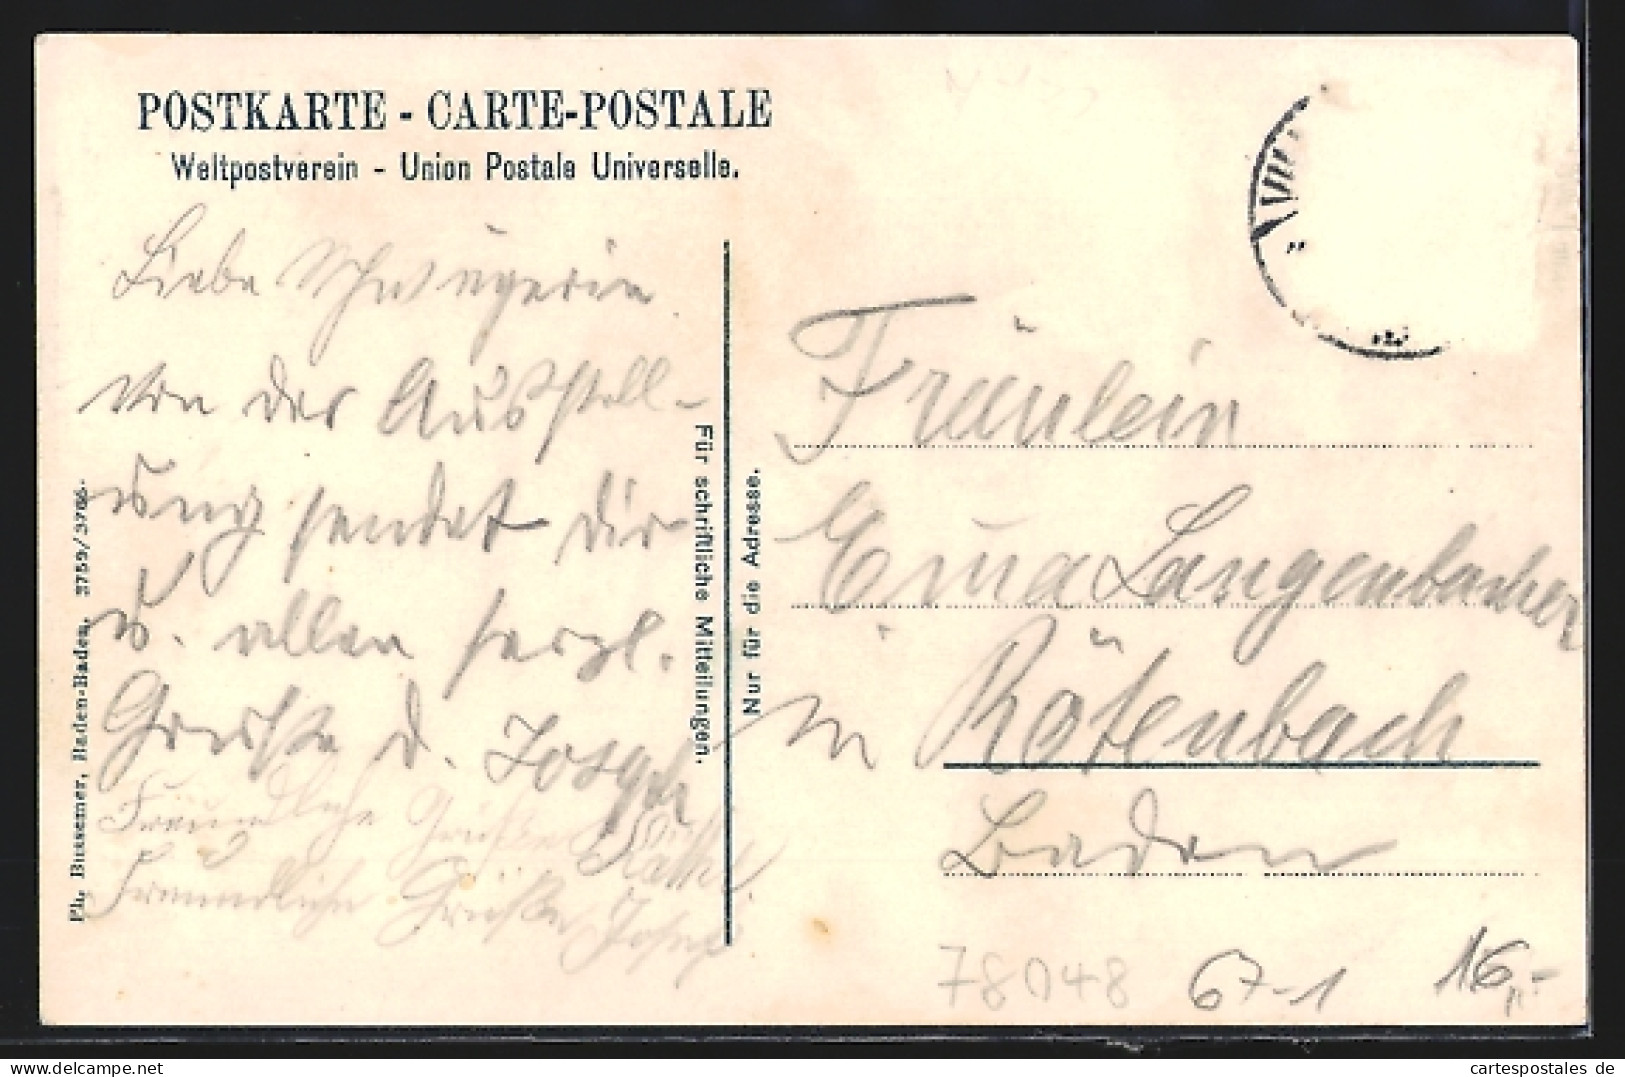 POSTKARTE - CARTE-POSTALE
Weltpostverein - Union Postale Universelle.
Liebe Schwägerin
von der Ausstell-
ung sendet dir
u. allen herzl.
Grüße d. Joseph
Freundliche Grüße
Freundliche Grüße Josef
Ph. Bussemer, Baden-Baden. 3759/3786.
Für schriftliche Mitteilungen.
Nur für die Adresse.
Fräulein
Ema Langenbacher
in Rötenbach
Baden
78048 67-1 16,-
cartespostales de